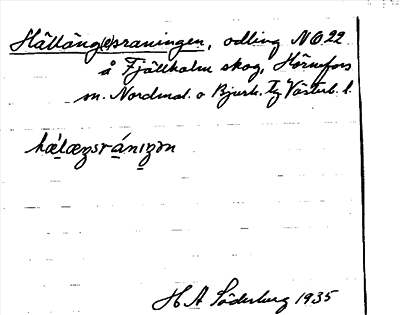 Hälläng(e)sraningen, odling NO.22
å Fjällholm skog, Hörnefors
sn. Nordmal. o Bjurh. tg Västerb. l.
hæ̀læŋsr̀ánıŋən
H A Söderberg 1935